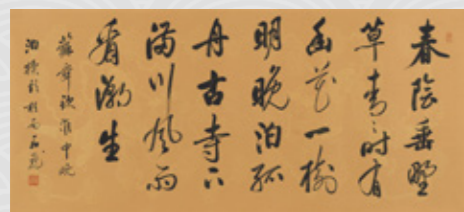 春陰垂野
草青青時有
幽花一樹
明晚泊孤
舟古寺下
滿川風雨
看潮生
蘇舜欽淮中晚
泊犢頭